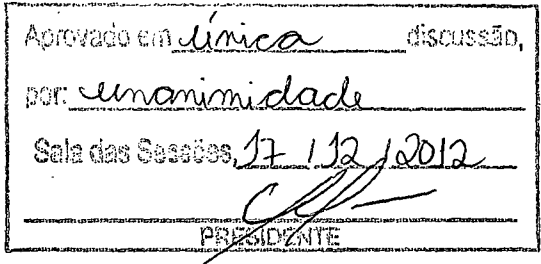 Aprovado em única discussão,
por: unanimidade
Sala das Sessões, 17 / 12 / 2012
PRESIDENTE